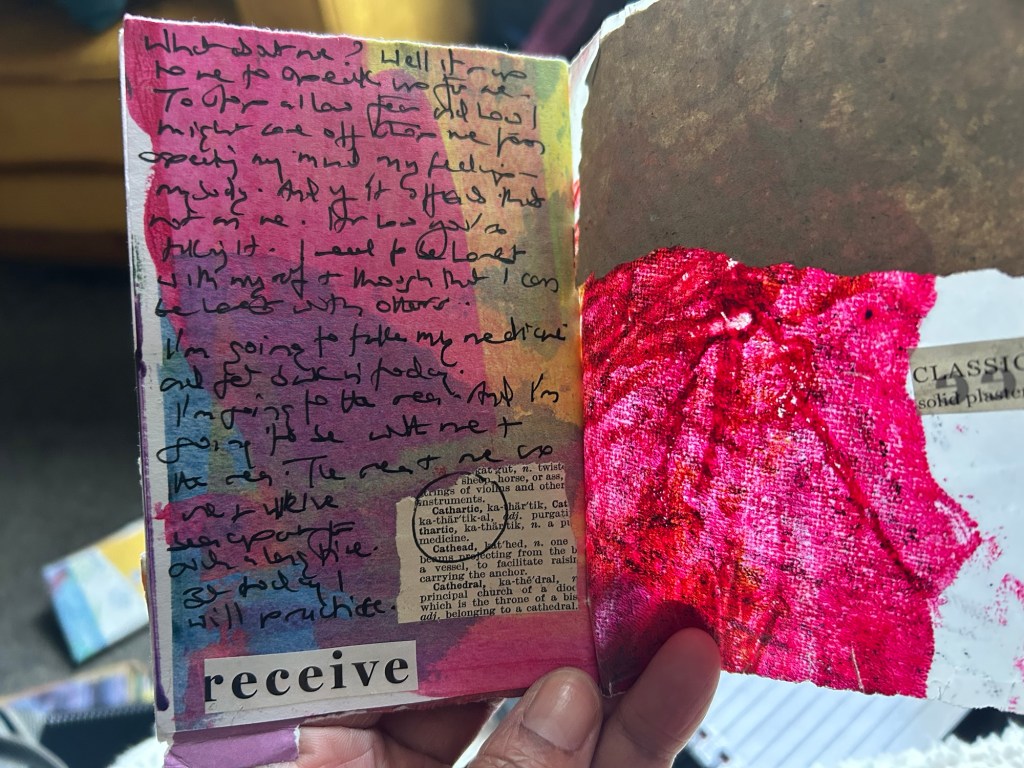 What about me? Well it's up
to me to speak up for me.
To stop allow fear and how I
might come off stop me from
opening my mind my feelings
my body. And if it offends that's
not on me. It's how you're
taking it. I need to be honest
with myself + though that I can
be honest with others.
I'm going to take my medicine
and get back in today.
I'm going to the sea. And I'm
going to be with me +
the sea. The sea + me
met
such a long time.
today I
will practice.
gat'gut, n. twist
sheep, horse, or ass,
strings of violins and other
instruments.
Cathartic, ka-thär'tik, Cat
ka-thär'tik-al, adj. purgati
thartic, ka-thär'tik, n. a pu
medicine.
Cathead, kat'hed, n. one
beams projecting from the b
a vessel, to facilitate raisin
carrying the anchor.
Cathedral, ka-thē'dral, n
principal church of a dioc
which is the throne of a bis
adj. belonging to a cathedral.
receive
CLASSIC
solid plaster